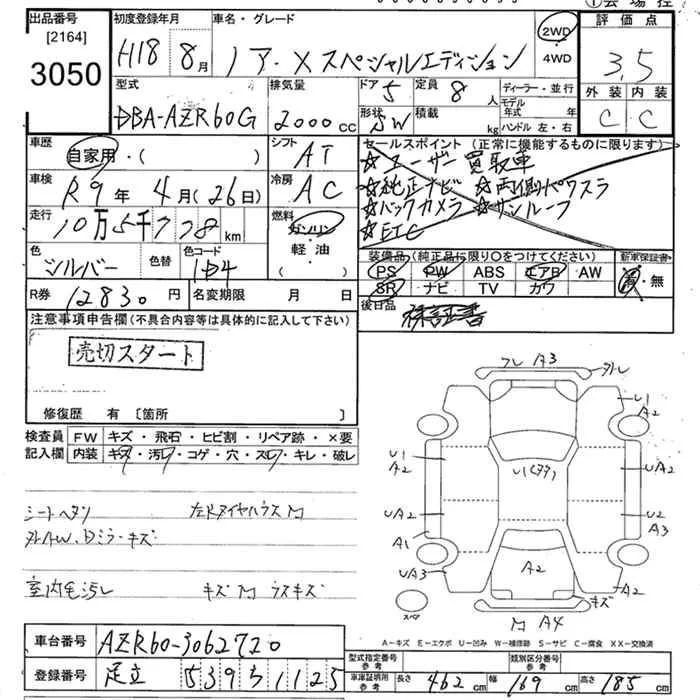 出品番号
[2164]
3050
初度登録年月
H18 8月
車名・グレード
ノア・Xスペシャルエディション
2WD
4WD
評価点
3.5
外装 内装
C C
型式
DBA-AZR60G
排気量
2000cc
ドア 5
定員 8人
形状 SW
積載 kg
ディーラー・並行
モデル年式 年
ハンドル 左・右
車歴
自家用・( )
シフト AT
車検
R9年 4月(26日)
冷房 AC
走行
10万5千778km
燃料
ガソリン
軽油
( )
色 シルバー
色替
色コード 1D4
R券 12830円
名変期限 月 日
セールスポイント(正常に機能するものに限ります)
☆ユーザー買取車
☆純正ナビ ☆両側パワスラ
☆バックカメラ ☆サンルーフ
☆ETC
装備品(純正品に限り○をつけてください)
新車保証書
PS PW ABS エアB AW
SR ナビ TV カワ
有・無
後日品 保証書
注意事項申告欄(不具合内容等は具体的に記入して下さい)
売切スタート
修復歴 有〔箇所 〕
検査員記入欄
FW キズ・飛石・ヒビ割・リペア跡・×要
内装 キズ・汚レ・コゲ・穴・スレ・キレ・破レ
シートヘタリ
室内毛汚レ
フレ A3
U1
A2
U1
A2
UA2
A1
UA3
UA2
U2
A3
A2
A2
キズ
A4
スペア
A－キズ E－エクボ U－凹み W－補修跡 S－サビ C－腐食 XX－交換済
車台番号 AZR60-3062720
登録番号 足立 539 す 1125
型式指定番号 参考
類別区分番号 参考
車庫証明用参考 長さ 462cm 幅 169cm 高さ 185cm